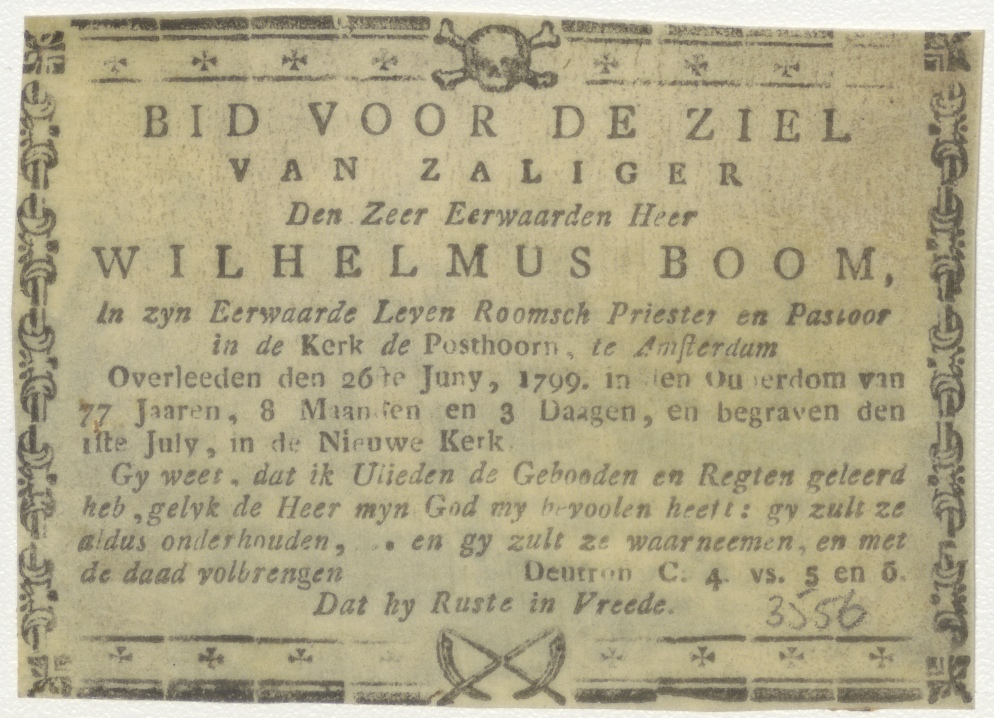 BID VOOR DE ZIEL
VAN ZALIGER
Den Zeer Eerwaarden Heer
WILHELMUS BOOM,
In zyn Eerwaarde Leven Roomsch Priester en Pastoor
in de Kerk de Posthoorn, te Amsterdam
Overleeden den 26ste Juny, 1799. in den Ouderdom van
77 Jaaren, 8 Maanden en 3 Daagen, en begraven den
1ste July, in de Nieuwe Kerk.
Gy weet, dat ik Ulieden de Gebooden en Regten geleerd
heb, gelyk de Heer myn God my bevoolen heeft: gy zult ze
aldus onderhouden, .. . en gy zult ze waarneemen, en met
de daad volbrengen Deutron C. 4. vs. 5 en 6.
Dat hy Ruste in Vreede.
3556